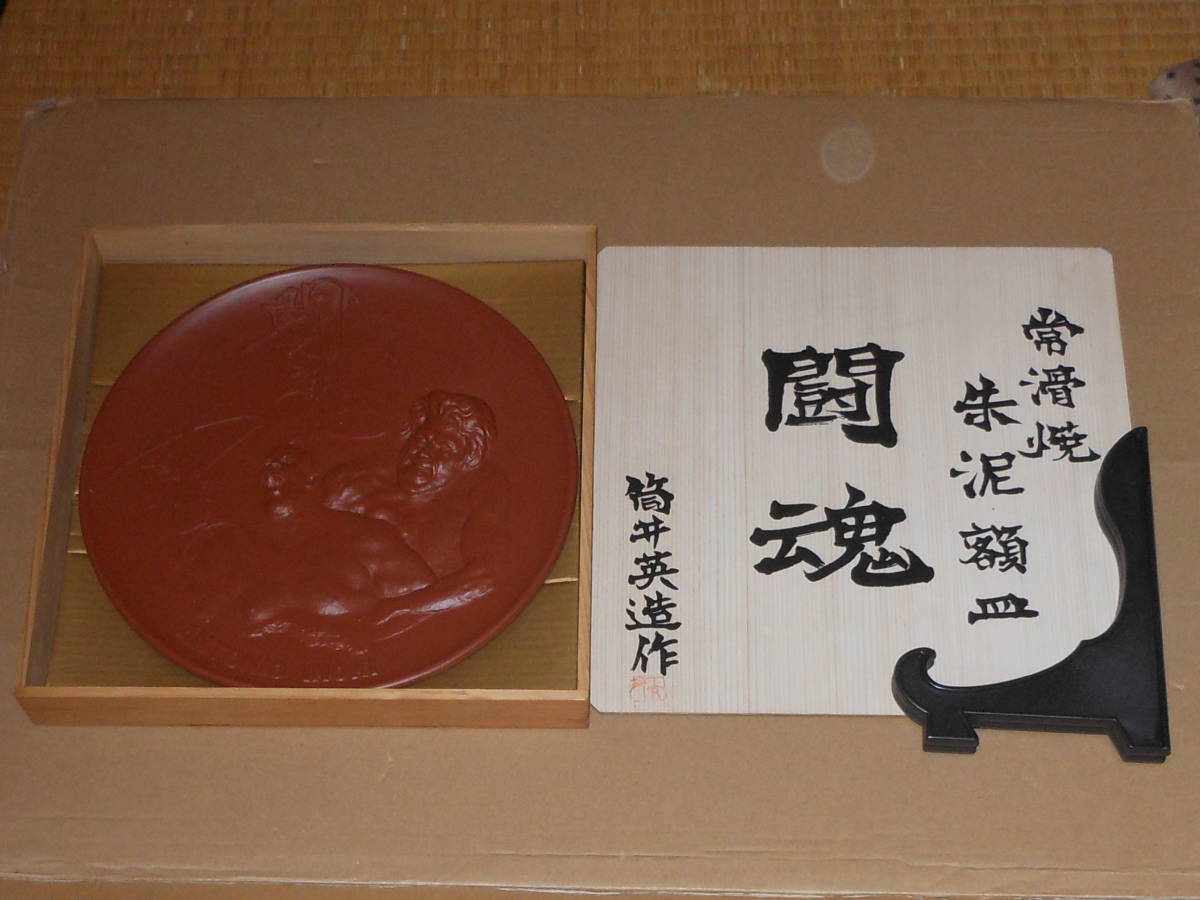 常滑焼
朱泥額皿
闘魂
筒井英造作